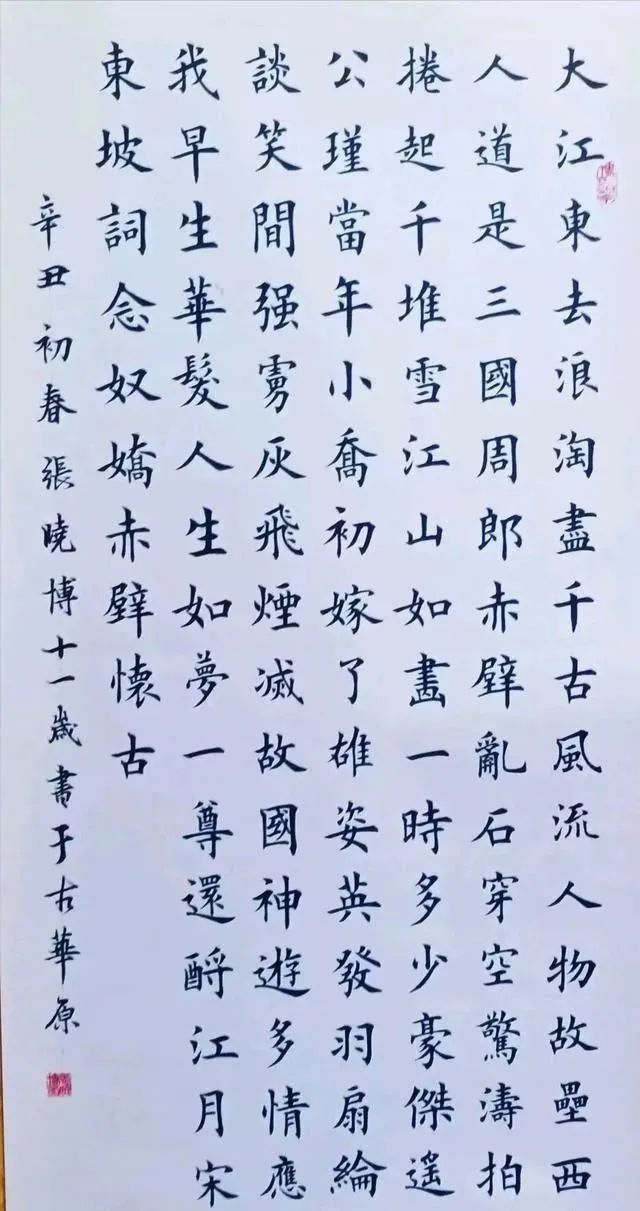 大江東去浪淘盡千古風流人物故壘西
人道是三國周郎赤壁亂石穿空驚濤拍
捲起千堆雪江山如畵一時多少豪傑遥
公瑾當年小喬初嫁了雄姿英發羽扇綸
談笑間强虜灰飛煙滅故國神遊多情應
我早生華髮人生如夢一尊還酹江月宋
東坡詞念奴嬌赤壁懷古
辛丑初春張曉博十一歲書于古華原